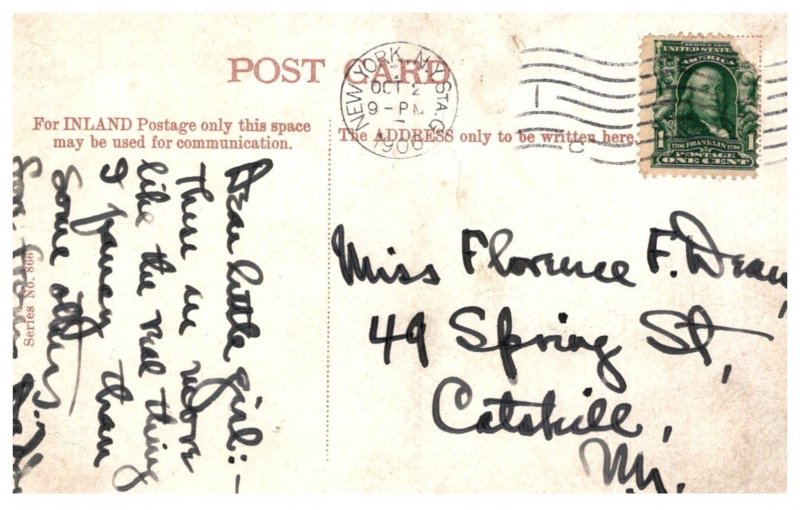 POST CARD
For INLAND Postage only this space
may be used for communication.
The ADDRESS only to be written here.
NEW YORK, N.Y. STA. G
OCT 2
9-PM
1906
1
C
SERIES 1902
UNITED STATES OF
AMERICA
1706 FRANKLIN 1790
1 POSTAGE 1
ONE CENT
Series No. 866
Dear little girl:—
These are more
like the real thing
I fancy than
some others
Miss Florence F. Dean,
49 Spring St,
Catskill,
N.Y.